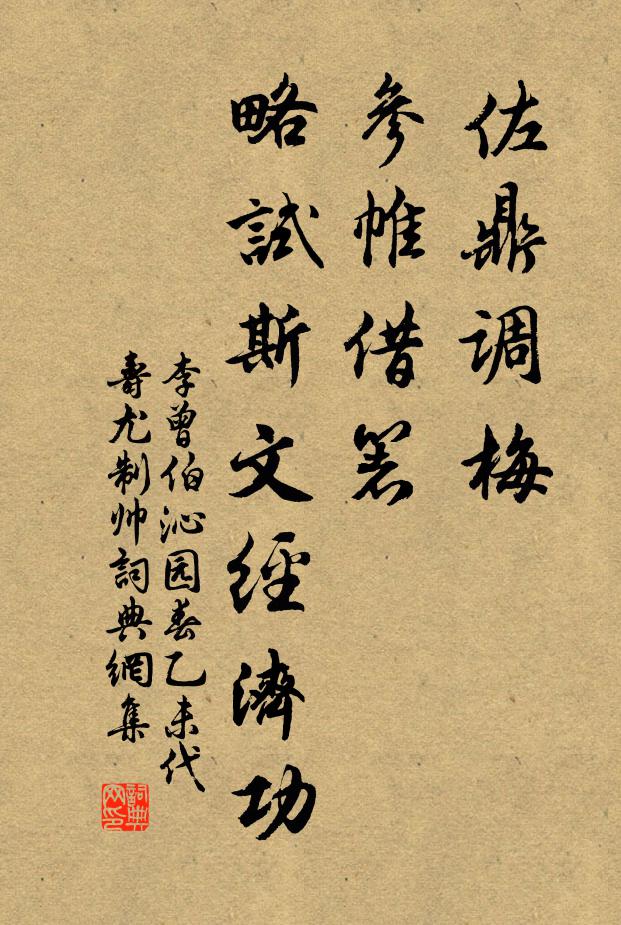 佐鼎调梅
参帷借箸
略試斯文經濟功
李曾伯沁园春乙未代
壽尤制帅詞典網集
詞典
网印